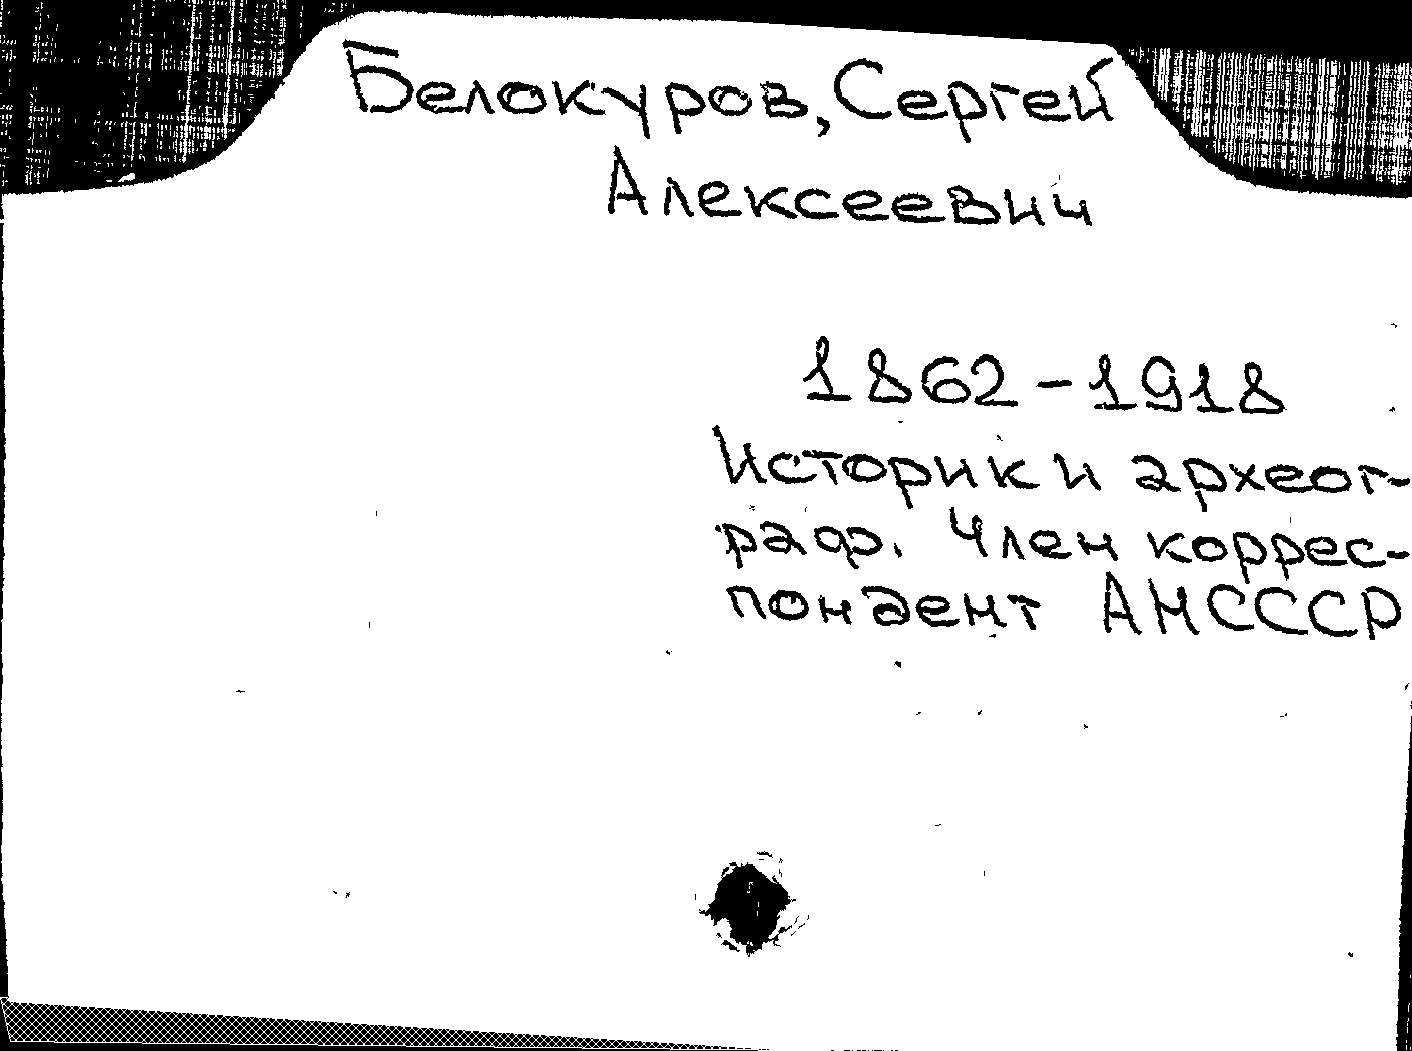 Белокуров, Сергей
Алексеевич
1862-1918
Историк и археог-
раф. Член коррес-
пондент АНСССР